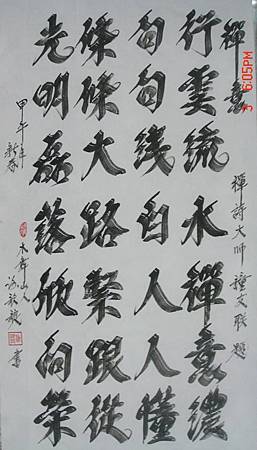 禪意
禪詩大師鐘文联題
行雲流水禪意濃
句句线白人人懂
條條大路緊跟從
光明磊落欣向榮
甲午年新春
木舞山人
書
6:05PM